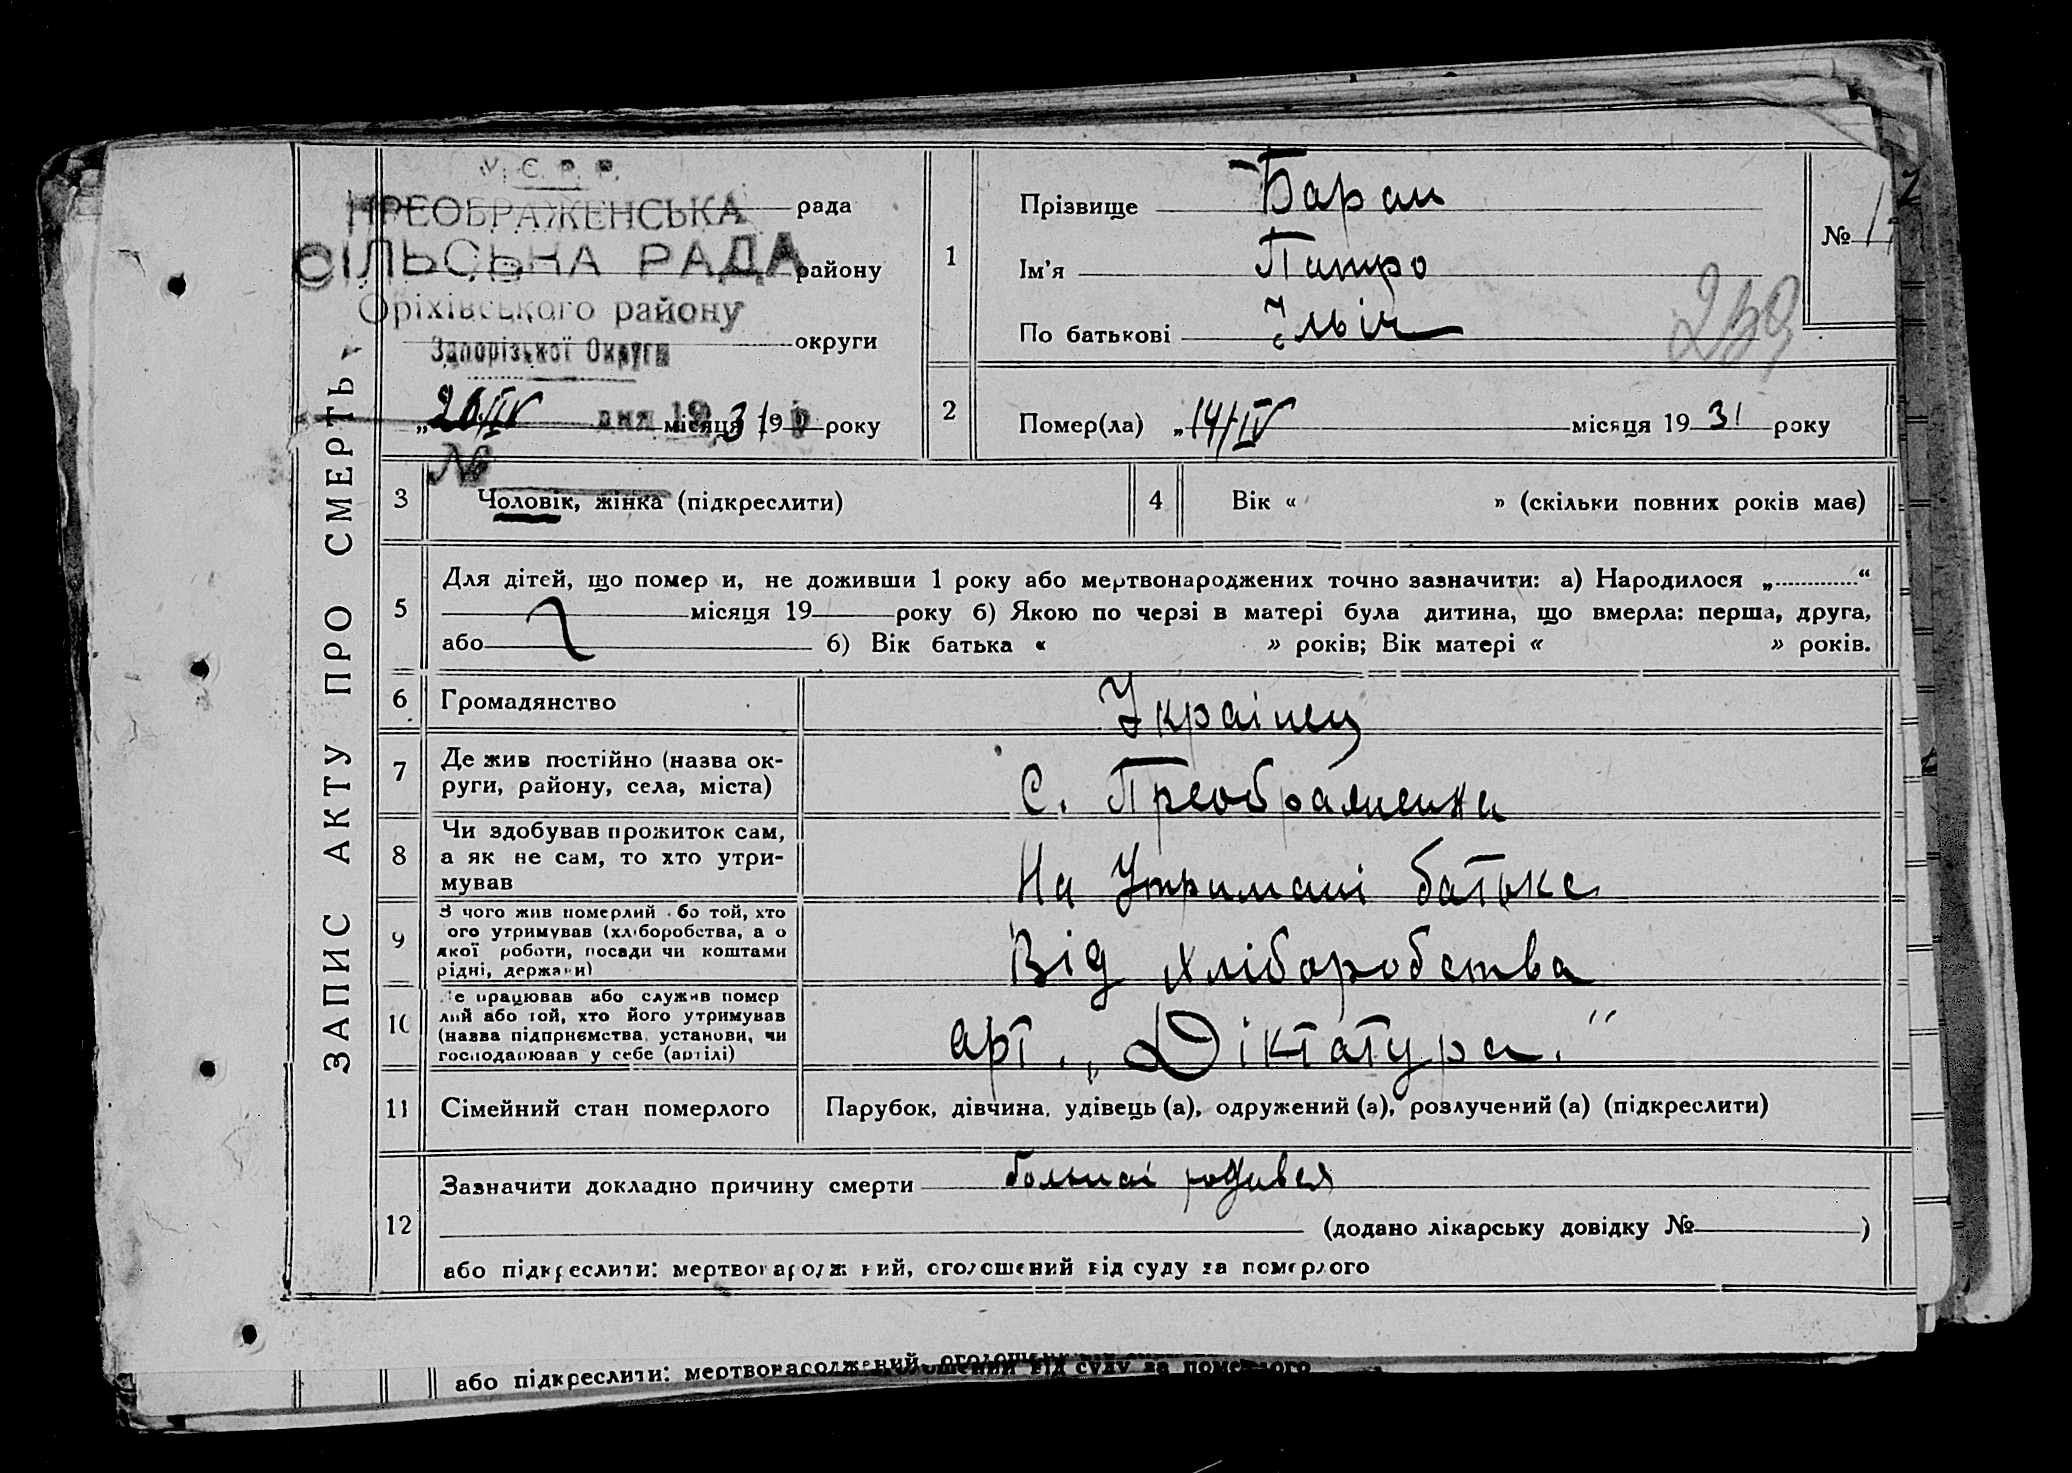 У.С.Р.Р.
ПРЕОБРАЖЕНСЬКА рада
СІЛЬСЬКА РАДА району
Оріхівського району
Запорізької Округи округи
„26/IV дня 1931 місяця 19 року
№
ЗАПИС АКТУ ПРО СМЕРТЬ
1 Прізвище Баран
Ім'я Питро
По батькові Ільіч
№ 17
259
2 Помер(ла) „14/IV місяця 1931 року
3 Чоловік, жінка (підкреслити)
4 Вік « » (скільки повних років має)
5 Для дітей, що помер и, не доживши 1 року або мертвонароджених точно зазначити: а) Народилося „ “
місяця 19 року б) Якою по черзі в матері була дитина, що вмерла: перша, друга,
або б) Вік батька « » років; Вік матері « » років.
6 Громадянство Україиец
7 Де жив постійно (назва ок-
руги, району, села, міста) С. Преображенки
8 Чи здобував прожиток сам,
а як не сам, то хто утри-
мував На Утримані батька
9 З чого жив померлий бо той, хто
ого утримував (хліборобства, а о
якої роботи, посади чи коштами
рідні, держави) Від хліборобства
10 е працював або служив помер
лий або той, хто його утримував
(назва підприємства, установи, чи
господарював у себе (артілі) арт. „Діктатура."
11 Сімейний стан померлого Парубок, дівчина, удівець (а), одружений (а), розлучений (а) (підкреслити)
12 Зазначити докладно причину смерти больной родився
(додано лікарську довідку № )
або підкреслити: мертвонароджений, оголошений від суду за померлого
або підкреслити: мертвонароджений, оголошений від суду за померлого